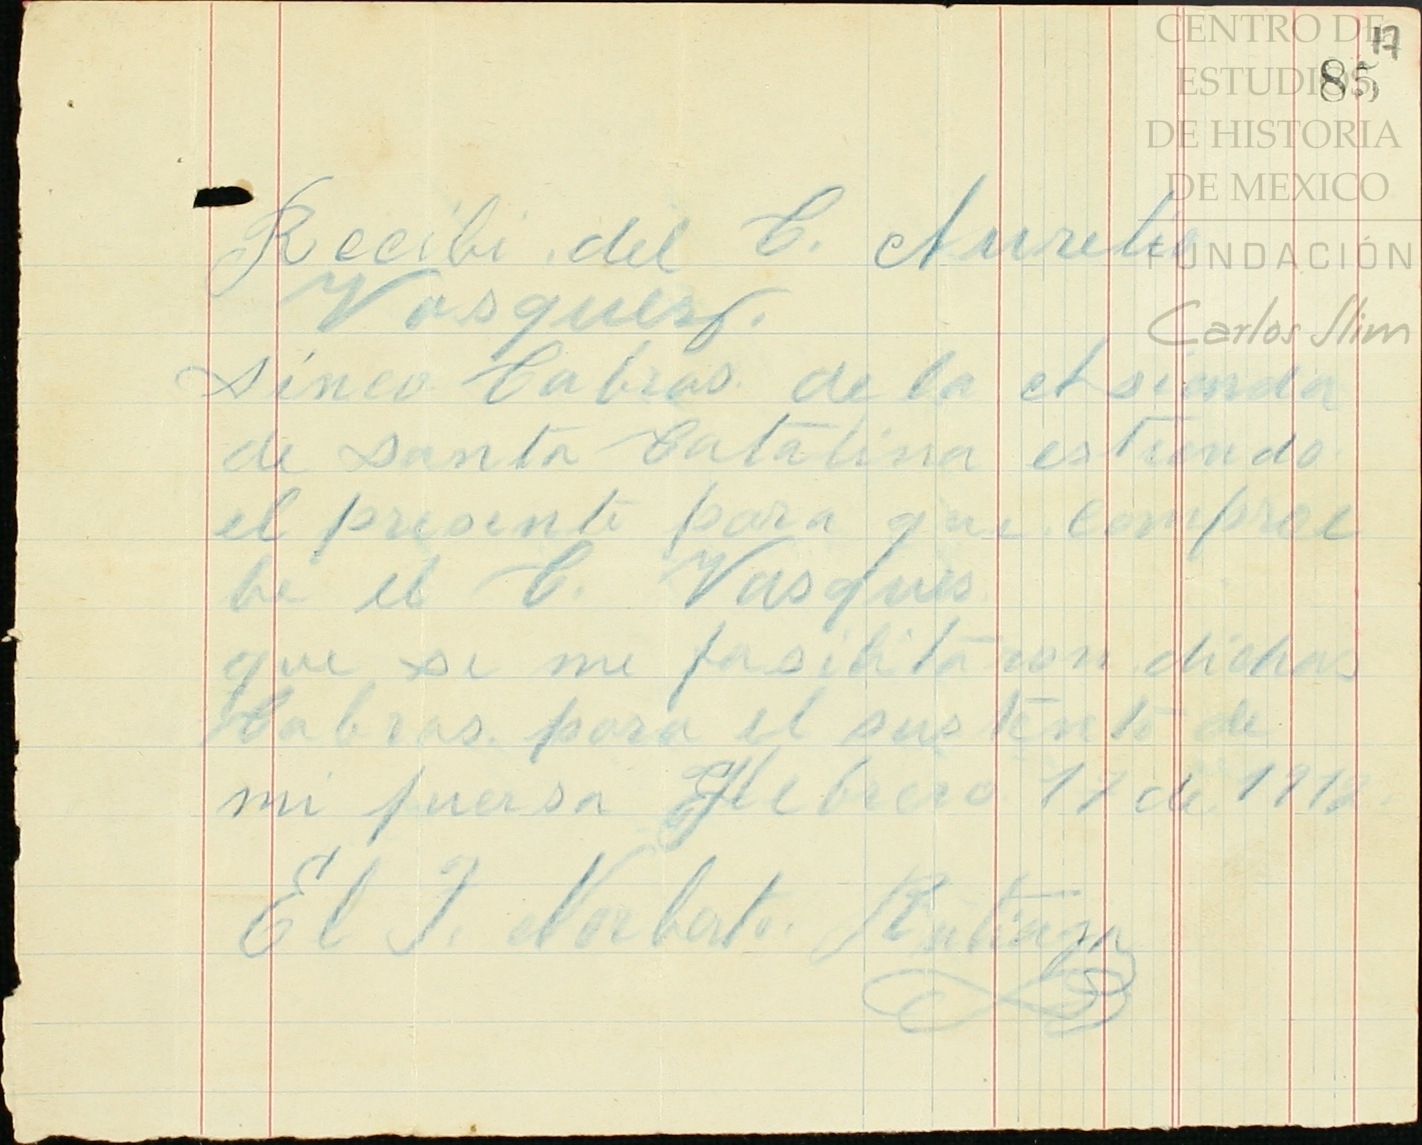 CENTRO DE
ESTUDIOS
DE HISTORIA
DE MEXICO
FUNDACIÓN
Carlos Slim
17
85
Recibi del C. Aurelio
Vasquez.
Sinco Cabras de la Asienda
de Santa Catalina estiendo
el presente para que comproe
be el C. Vasques
que se me fasilitaron dichas
Cabras para el sustento de
mi fuersa Febrero 17 de 191
El J. Norberto